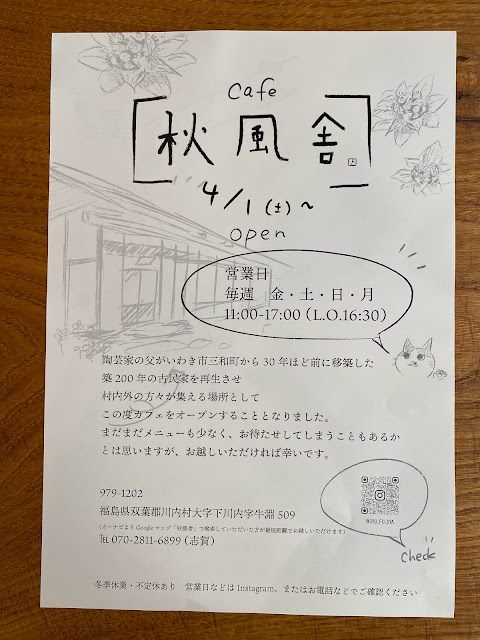 Cafe
秋風舎
4/1(土)〜
open
営業日
毎週 金・土・日・月
11:00-17:00 (L.O.16:30)
陶芸家の父がいわき市三和町から30年ほど前に移築した
築200年の古民家を再生させ
村内外の方々が集える場所として
この度カフェをオープンすることとなりました。
まだまだメニューも少なく、お待たせしてしまうこともあるか
とは思いますが、お越しいただければ幸いです。
979-1202
福島県双葉郡川内村大字下川内字牛淵509
(カーナビよりGoogleマップ「秋風舎」で検索していただいた方が最短距離でお越しいただけます)
℡ 070-2811-6899 (志賀)
check
冬季休業・不定休あり 営業日などは Instagram、またはお電話などでご確認ください